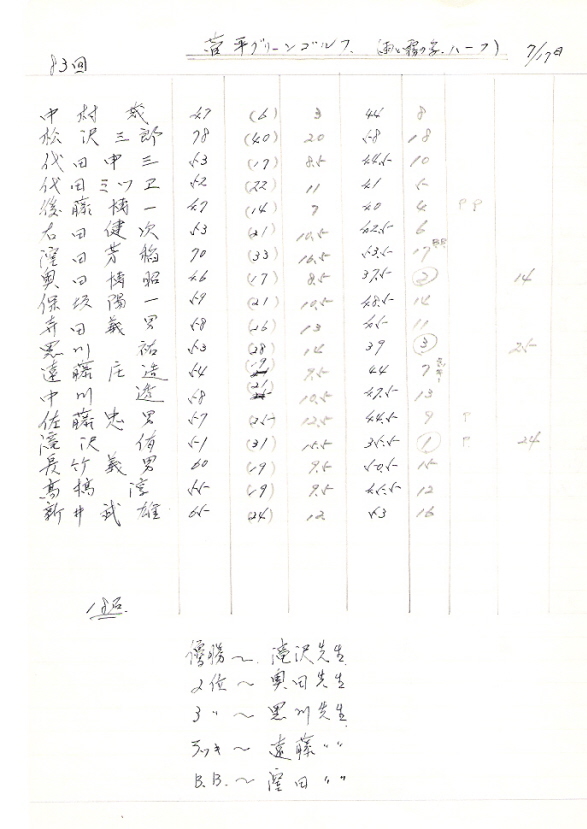 菅平グリーンゴルフ (雨と霧の為、ハーフ) 7/17日
83回
中村 47 (6) 3 44 8
松沢三郎 78 (40) 20 58 18
代田中三 53 (17) 8.5 44.5 10
代田ミツエ 52 (22) 11 41 5
後藤博一 47 (14) 7 40 4 P P
右田健次 53 (21) 10.5 42.5 6
窪田芳稲 70 (33) 16.5 53.5 17 BB
奥田博昭 46 (17) 8.5 37.5 ② 14
保坂陽一 59 (21) 10.5 48.5 14
寺田義男 58 (26) 13 45 11
黒川 祐 53 (28) 14 39 ③ 25
遠藤庄造 54 (19) 9.5 44 7
中川 透 58 (21) 10.5 47.5 13
佐藤忠男 57 (25) 12.5 44.5 9 P
滝沢 侑 51 (31) 15.5 35.5 ① P 24
長竹義男 60 (19) 9.5 50.5 15
高橋 淳 55 (19) 9.5 45.5 12
新井武雄 65 (24) 12 53 16
18名
優勝〜 滝沢先生
2位〜 奥田先生
3〃〜 黒川先生
ラッキー〜 遠藤〃〃
B.B.〜 窪田〃〃